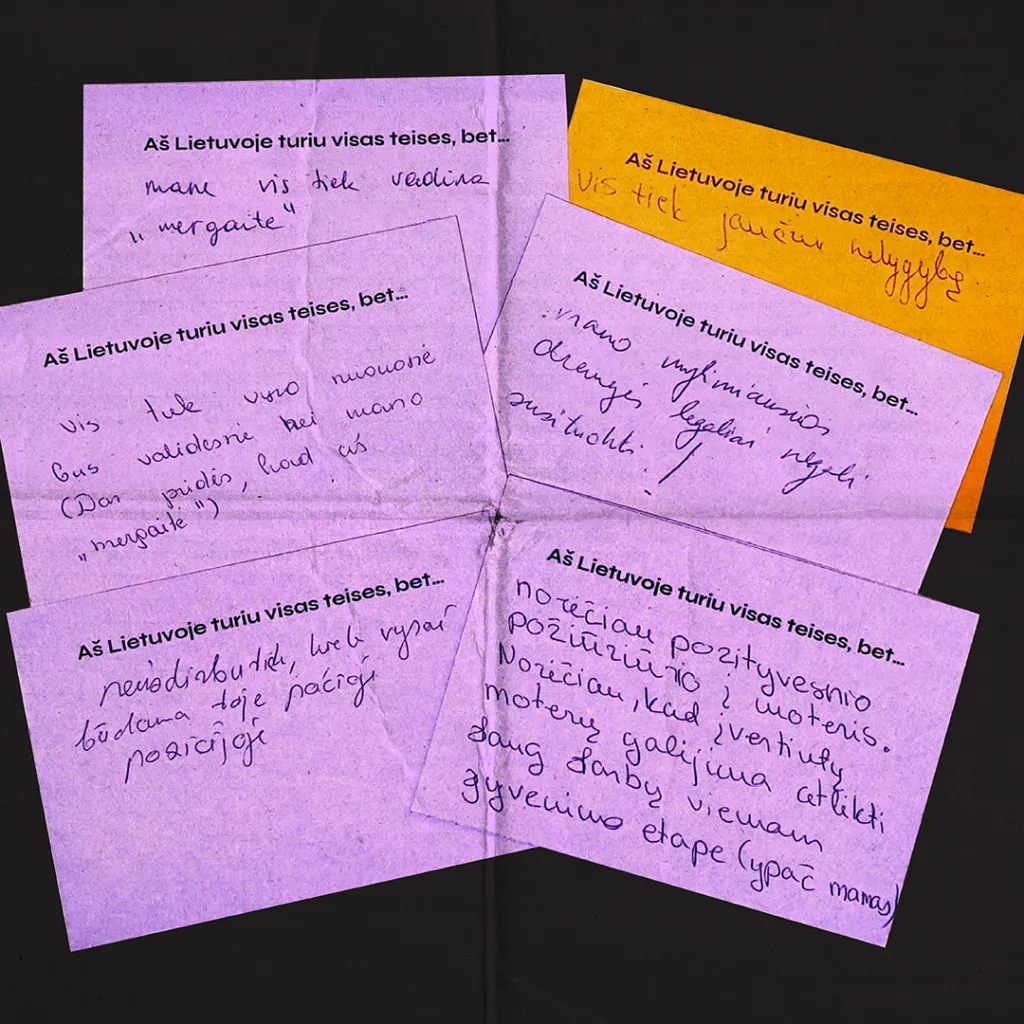 Aš Lietuvoje turiu visas teises, bet...
mane vis tiek vadina
„mergaite"
Aš Lietuvoje turiu visas teises, bet...
vis tiek jaučiu nelygybę
Aš Lietuvoje turiu visas teises, bet...
vis tiek vyro nuomonė
bus validesnė nei mano
(Dar pridės, kad aš
„mergaitė")
Aš Lietuvoje turiu visas teises, bet...
mano mylimiausios
draugės legaliai negali
susituokti!
Aš Lietuvoje turiu visas teises, bet...
neuždirbu tiek, kiek vyrai
būdama toje pačioje
pozicijoje
Aš Lietuvoje turiu visas teises, bet...
norėčiau pozityvesnio
požiūrio į moteris.
Norėčiau, kad įvertintų
moterų galėjimą atlikti
daug darbų vienam
gyvenimo etape (ypač mamas)